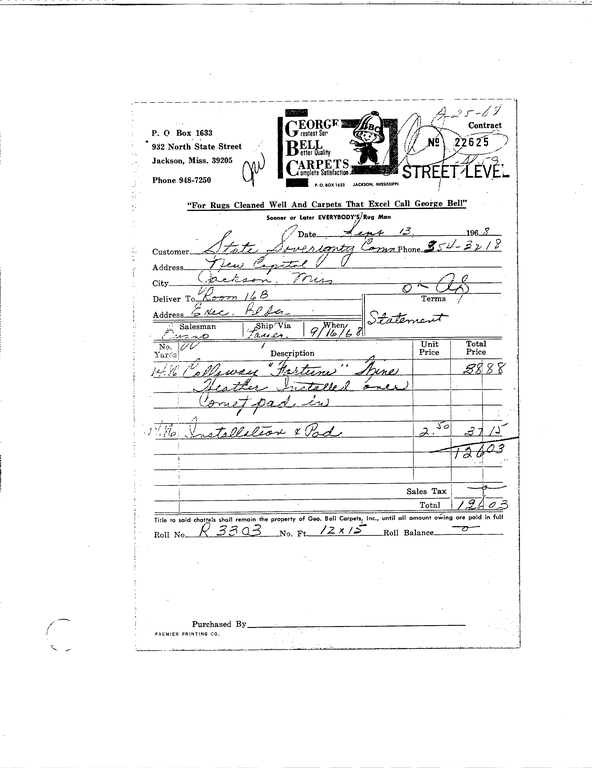 8-25-69
P. O Box 1633
932 North State Street
Jackson, Miss. 39205
Phone 948-7250
GEORGE
Greatest Ser
BELL
Better Quality
CARPETS
Complete Satisfaction
GBC
P. O. BOX 1633 JACKSON, MISSISSIPPI
Contract
No 22625
STREET LEVEL
"For Rugs Cleaned Well And Carpets That Excel Call George Bell"
Sooner or Later EVERYBODY'S Rug Man
Date Sept 13 1968
Customer State Sovereignty Comm Phone 354-3218
Address New Capitol
City Jackson, Miss
Deliver To Room 16B
Terms
Address Exec. Bldg.
Statement
Salesman Ship Via When 9/16/68
No. Yards Description Unit Price Total Price
14.86 Callaway "Fortune" 8888
Heather Installed over
Comet pad in
Installation & Pad 2.50 3715
12603
Sales Tax
Total 12603
Title to said chattels shall remain the property of Geo. Bell Carpets, Inc., until all amount owing are paid in full
Roll No. R3303 No. Ft. 12x15 Roll Balance 0
Purchased By
PREMIER PRINTING CO.